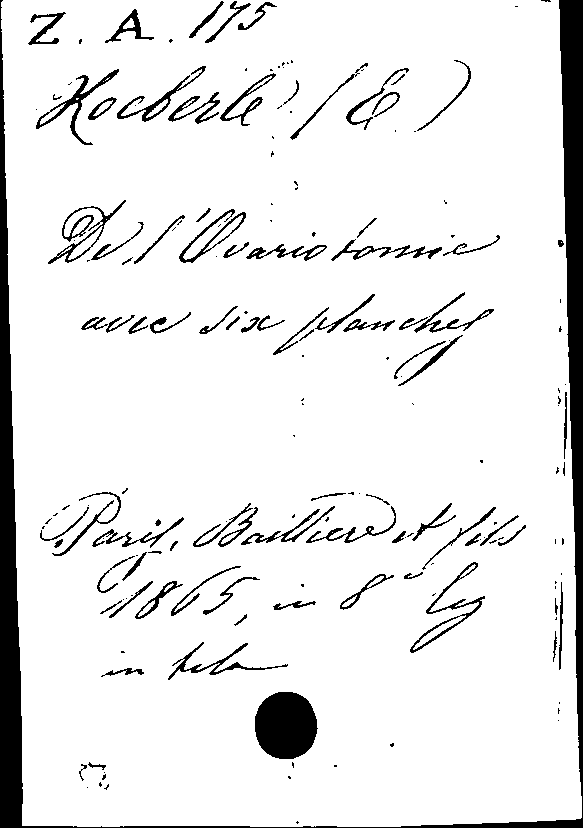 Z. A. 175
Koeberlé (E.)
De l'Ovariotomie
avec six planches
Paris, Baillière et fils
1865, in 8° leg
in tela